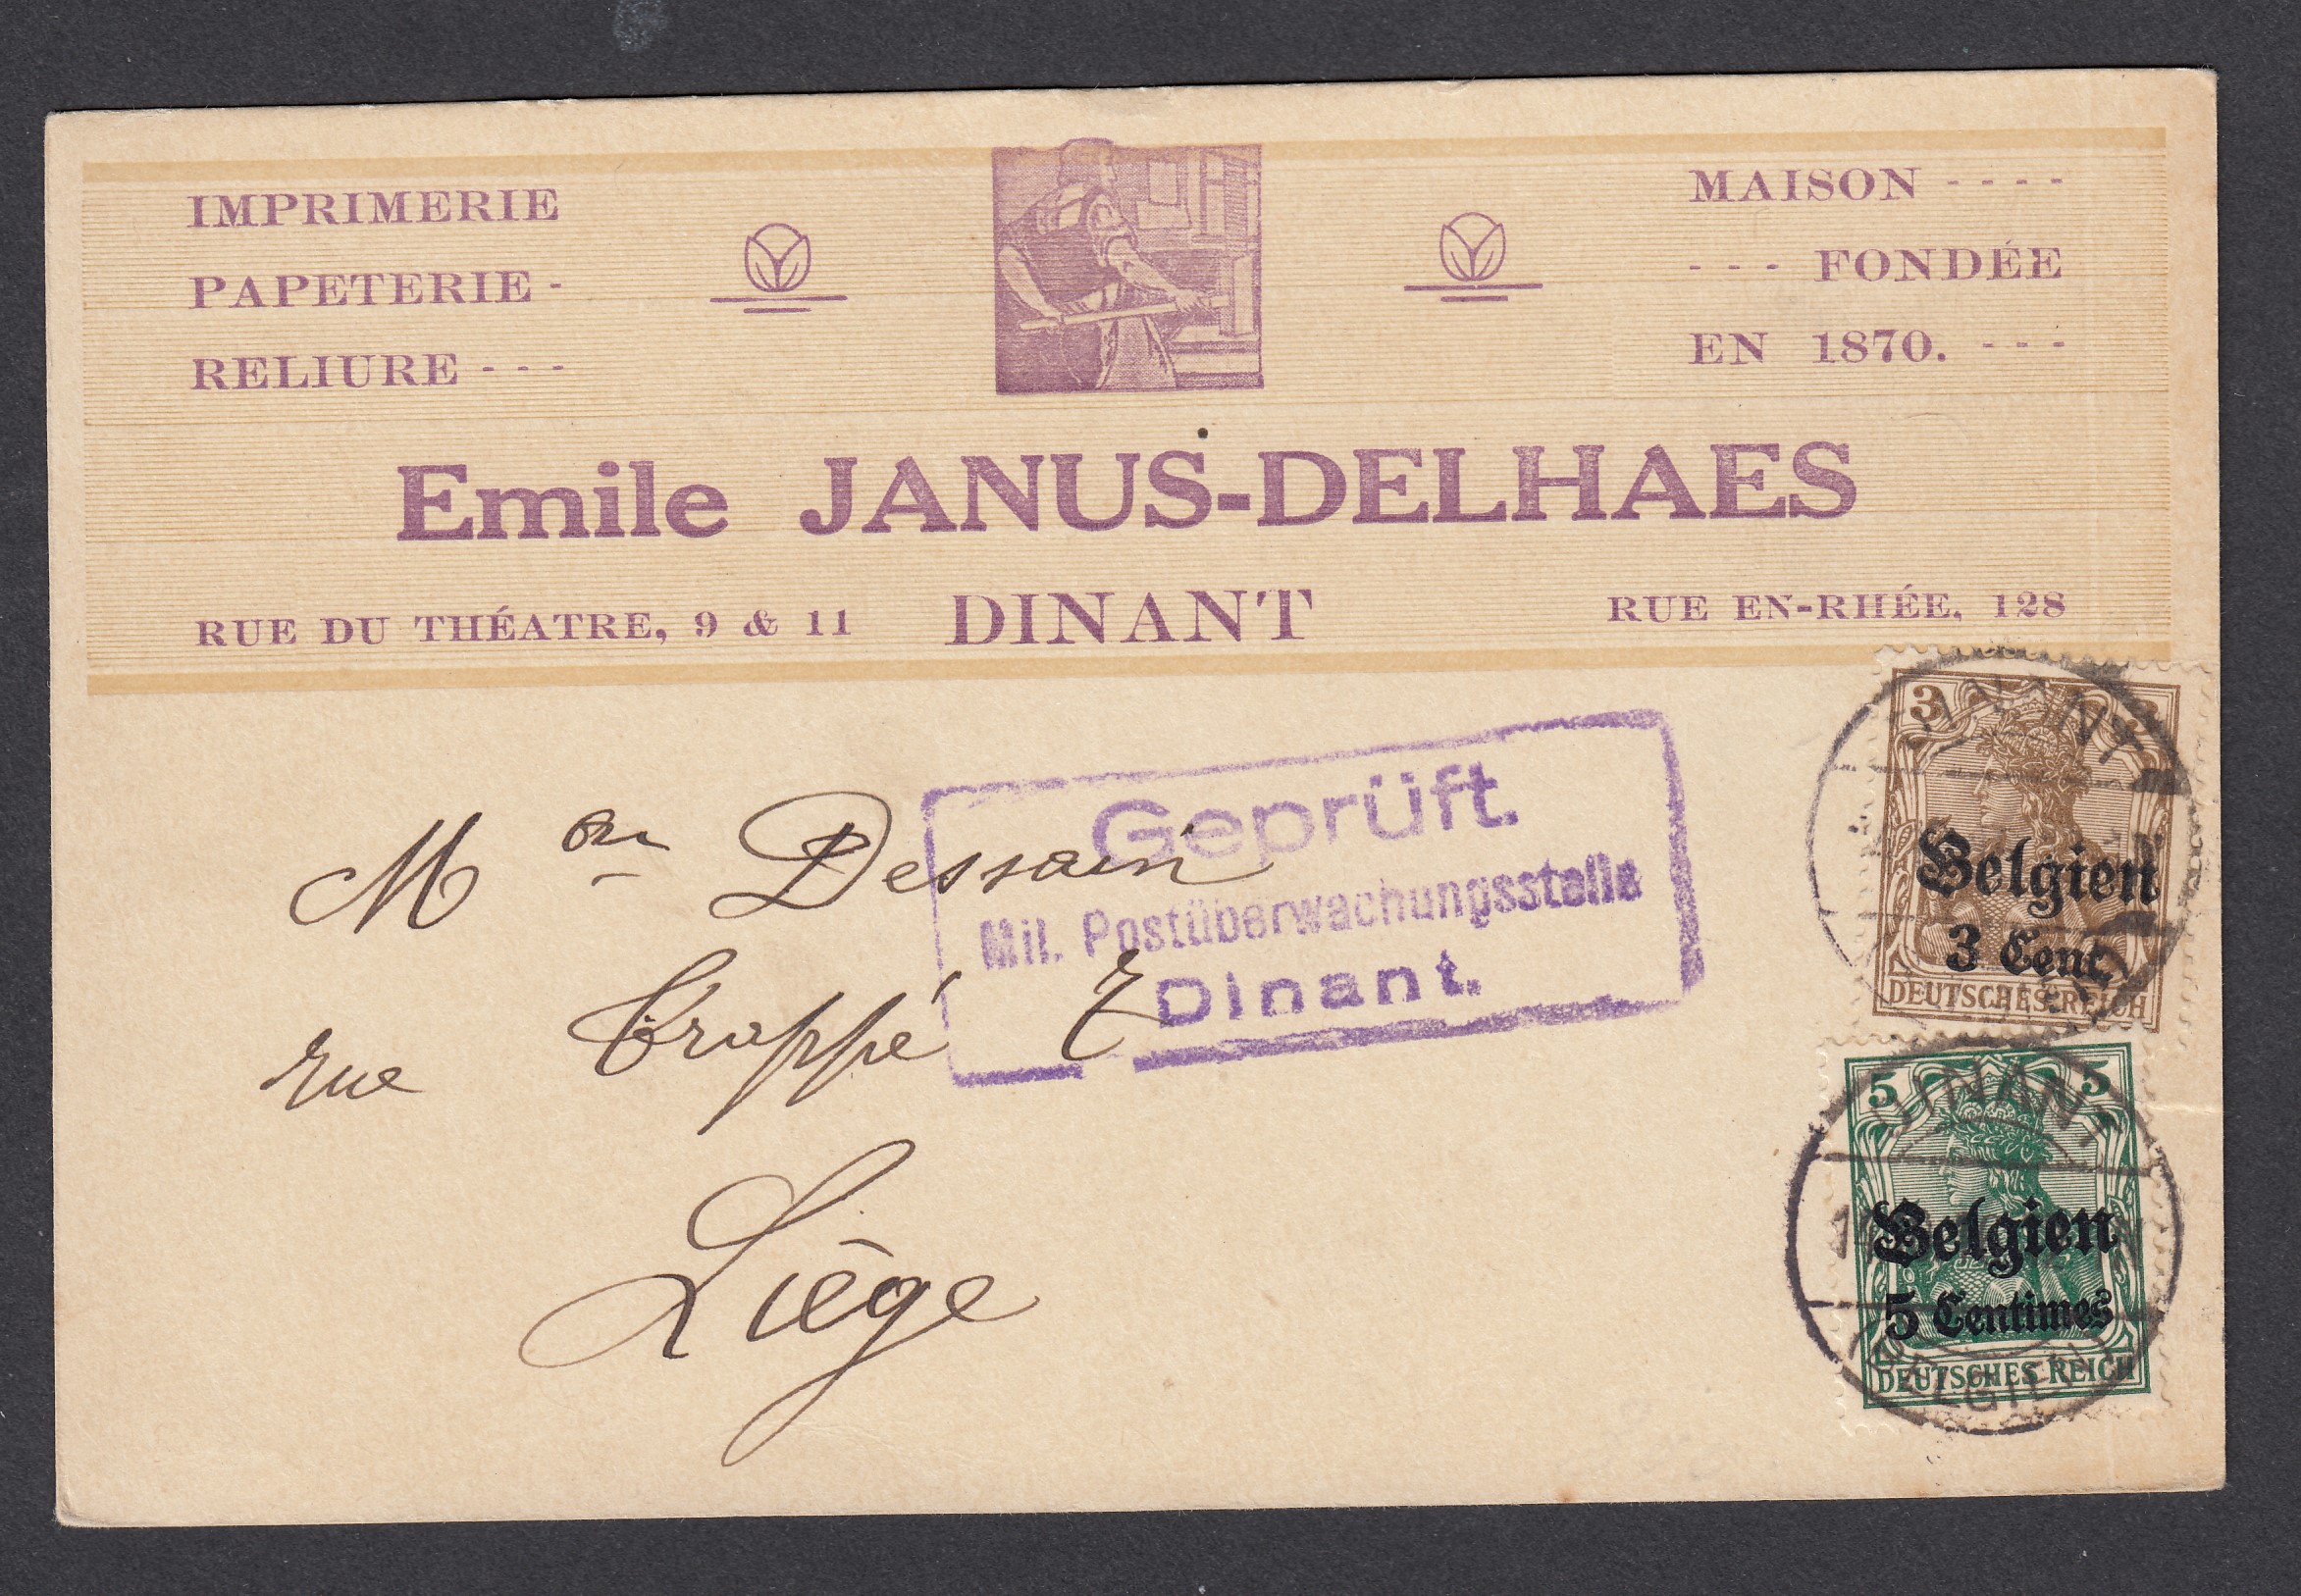 IMPRIMERIE
PAPETERIE -
RELIURE - - -
MAISON - - - -
- - - FONDÉE
EN 1870. - - -
Emile JANUS-DELHAES
RUE DU THÉATRE, 9 & 11
DINANT
RUE EN-RHÉE, 128
Geprüft.
Mil. Postüberwachungsstelle
Dinant.
Mon Dessain
rue Trappé 7
Liège
3 3
DINANT
Belgien
3 Cent.
DEUTSCHES REICH
5 5
DINANT
Belgien
5 Centimes
DEUTSCHES REICH
(BELGIEN)